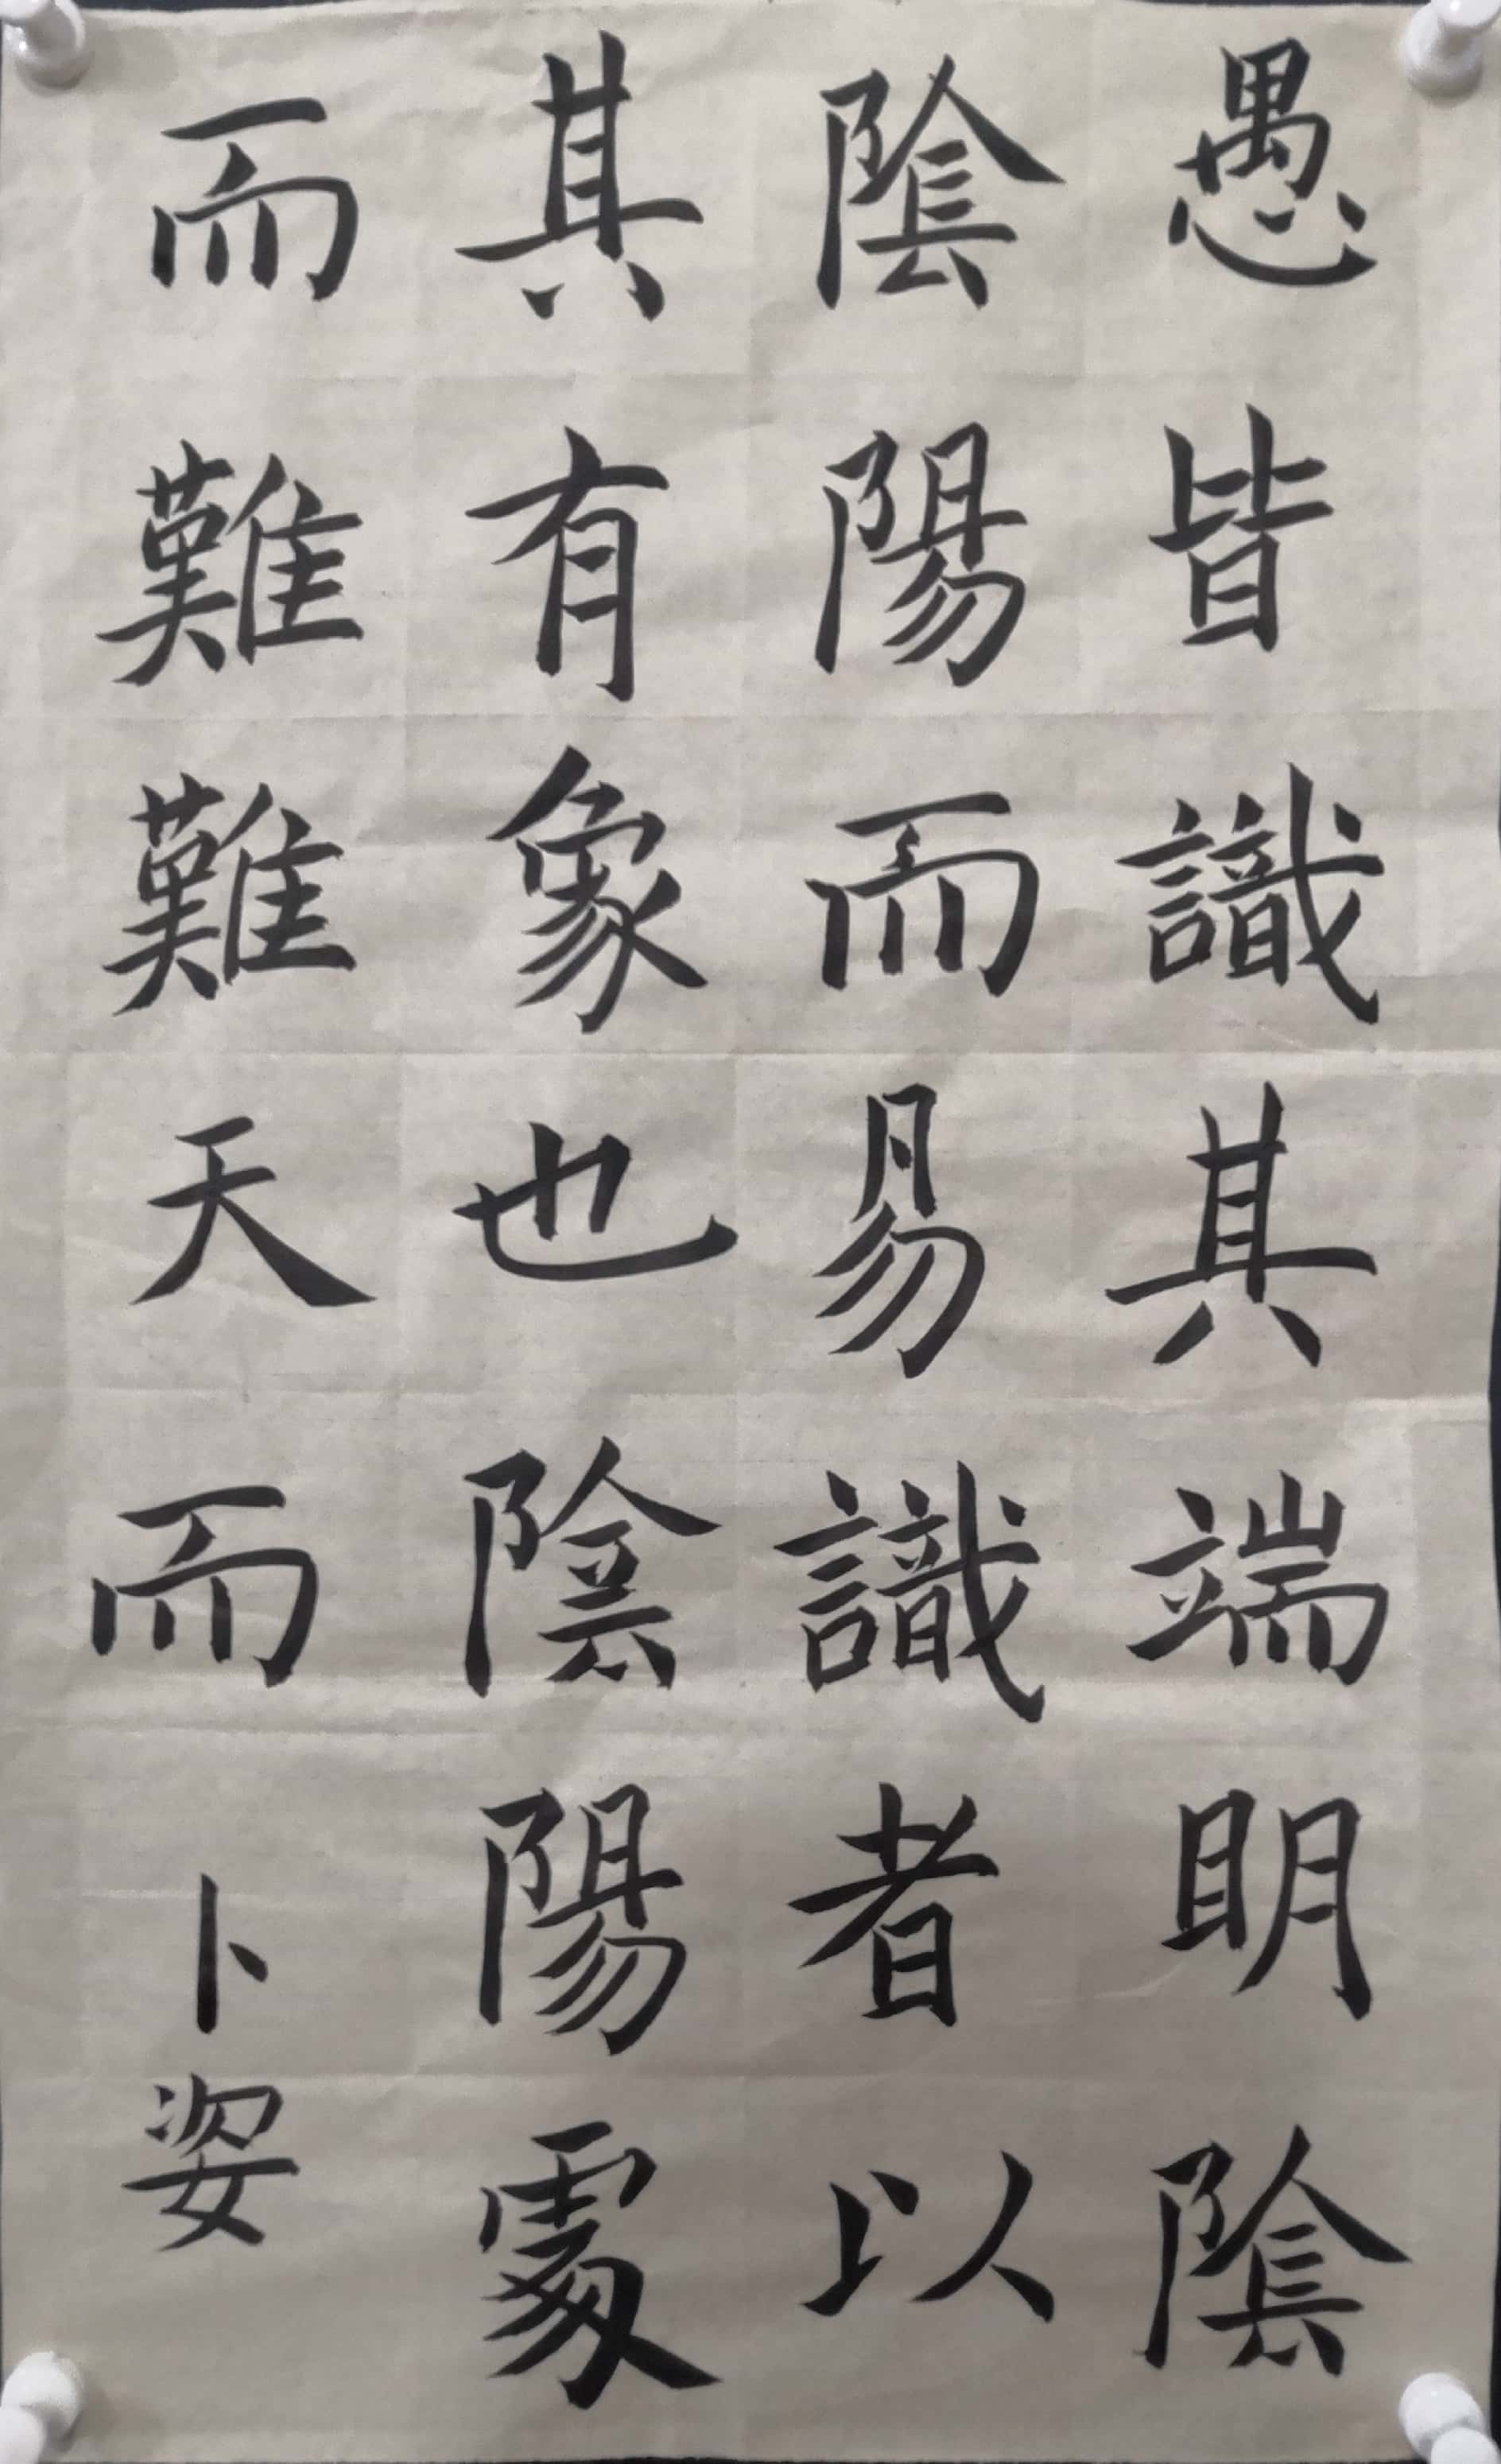 愚皆識其端眀陰
陰陽而易識者以
其有象也陰陽處
而難難天而
卜姿